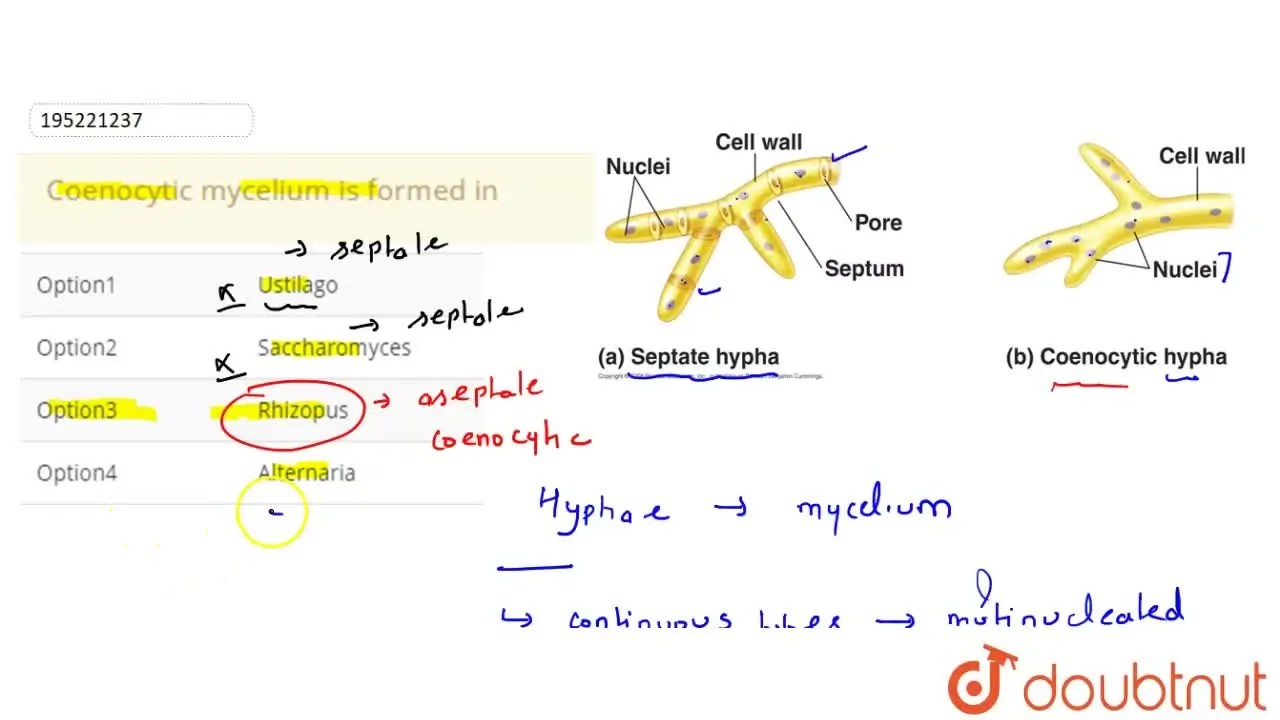 195221237
Coenocytic mycelium is formed in
→ septate
Option1 Ustilago
→ septate
Option2 Saccharomyces
Option3 Rhizopus → aseptate
coenocytic
Option4 Alternaria
Cell wall
Nuclei
Pore
Septum
(a) Septate hypha
Cell wall
Nuclei
(b) Coenocytic hypha
Hyphae → mycelium
↳ continuous tubes → mutinucleated
doubtnut